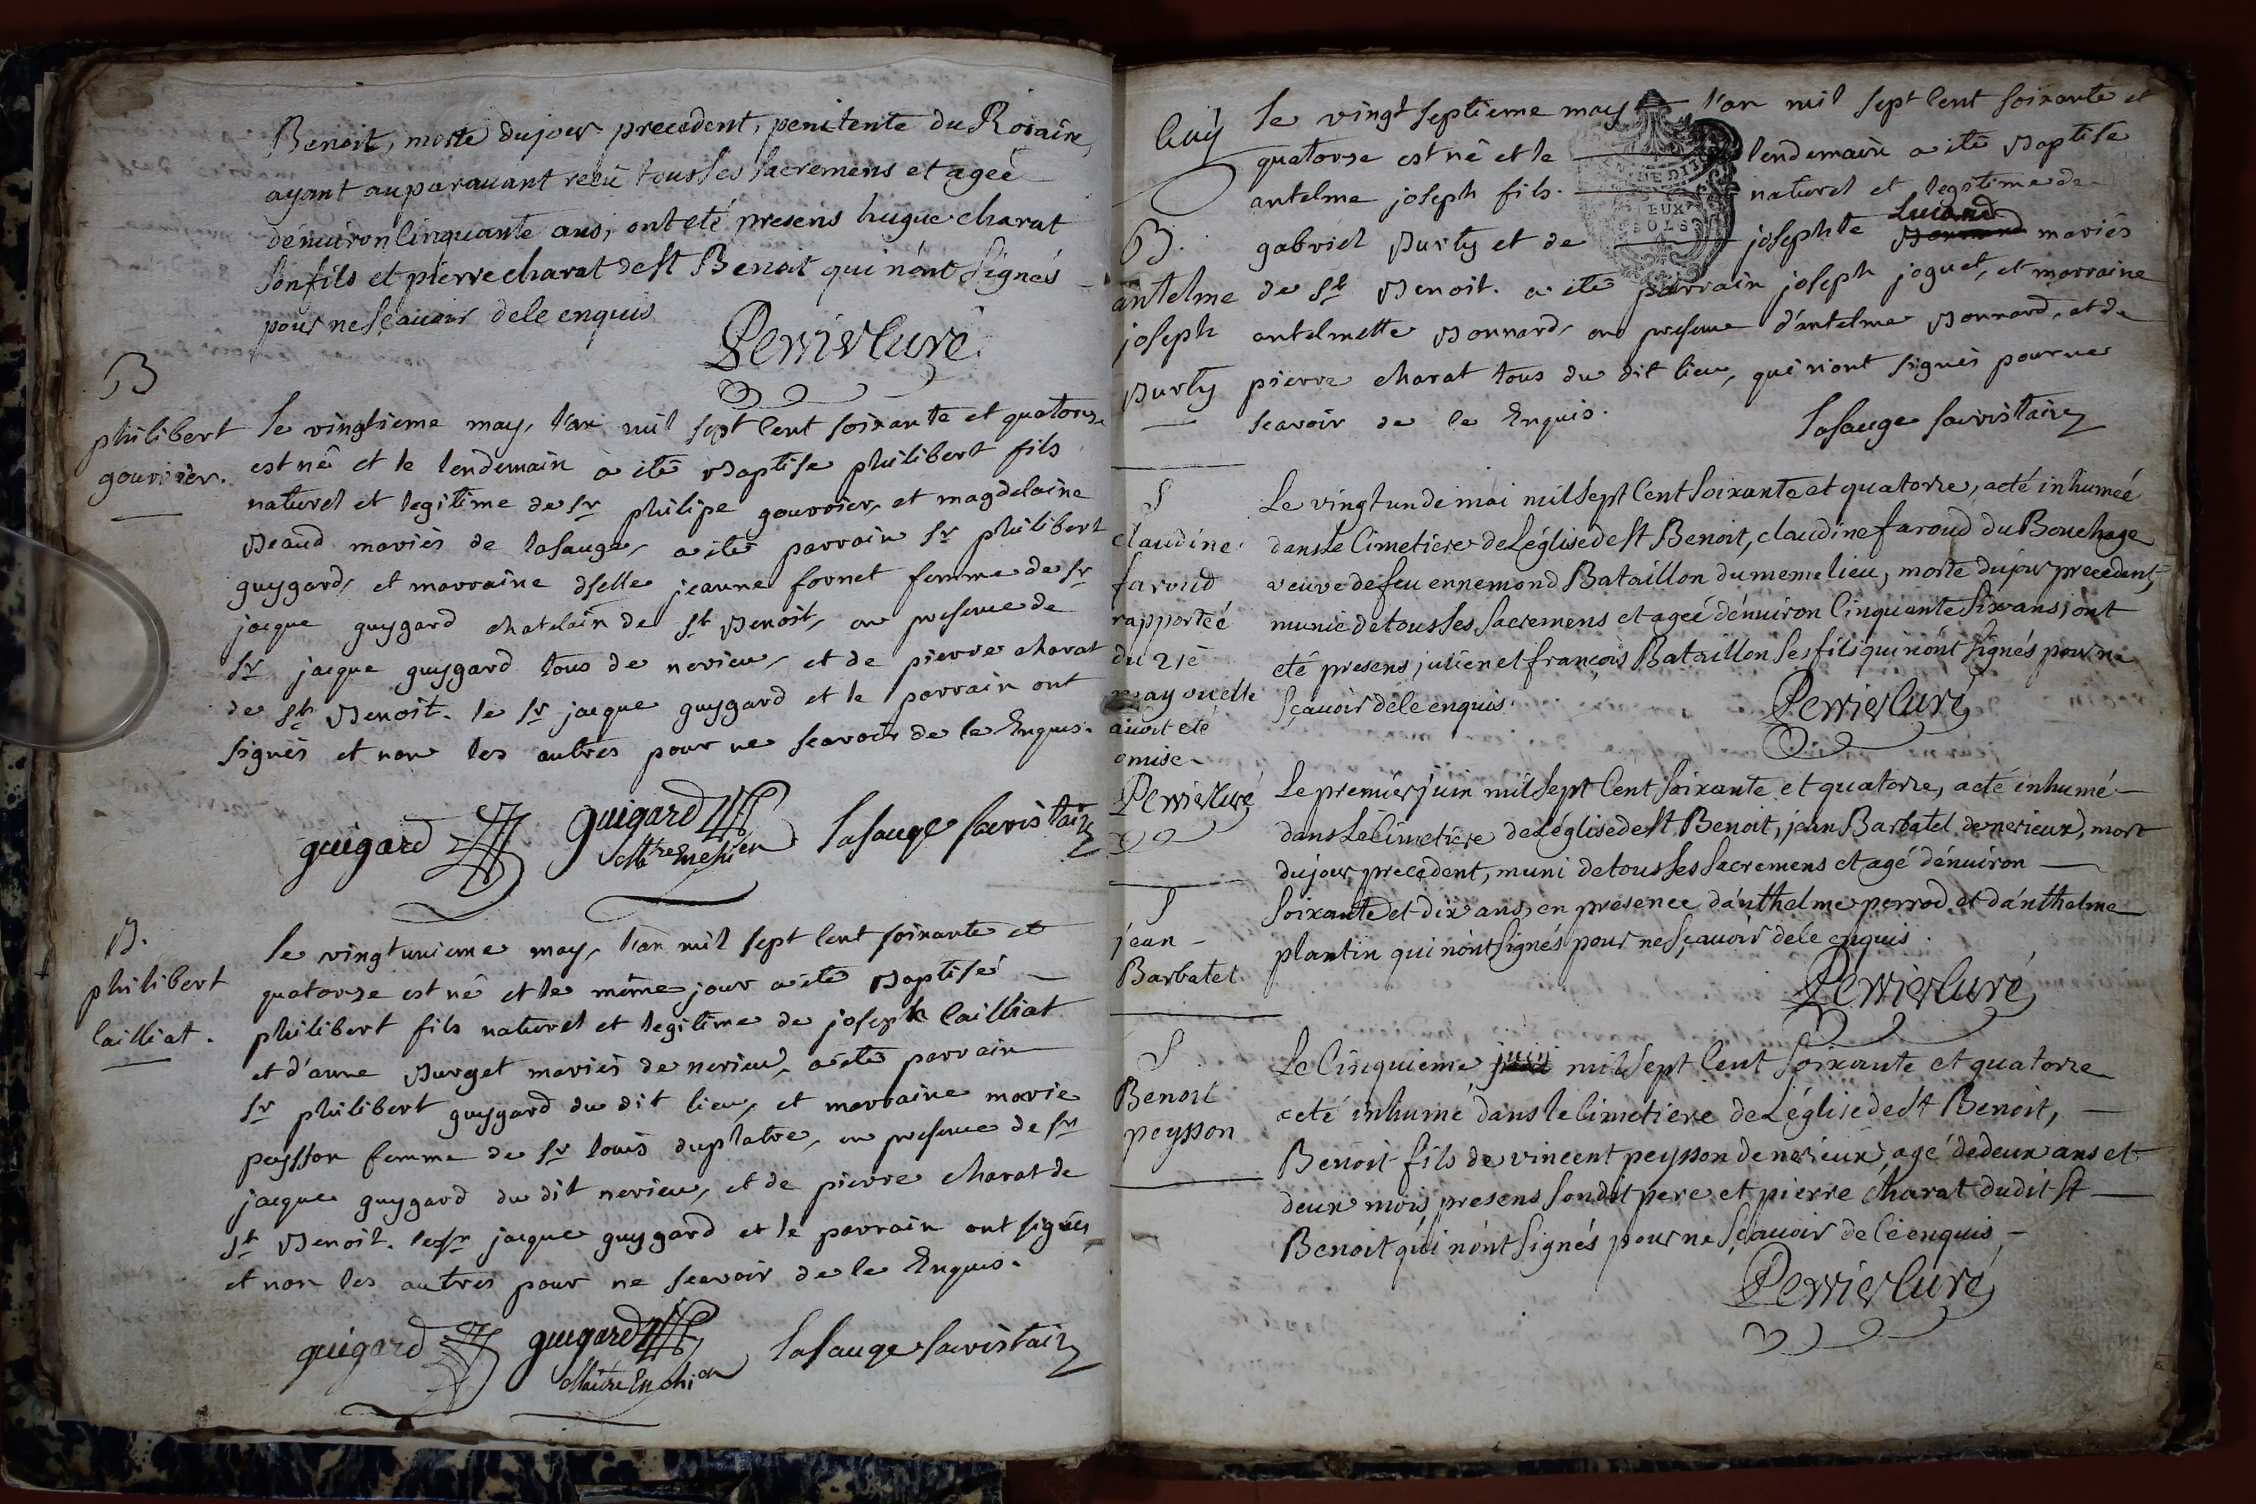 Benoit, morte du jour precedent, penitente du Rosaire,
ayant auparavant reçû tous les sacremens et ageé
d'environ cinquante ans, ont eté presens hugue charat
son fils et pierre charat de st Benoit qui n'ont signés
pour ne sçavoir de le enquis
Perrier curé
B
philibert
gouvrier.
le vingtieme may, l'an mil sept cent soixante et quatorze
est né et le lendemain a ité Baptise philibert fils
naturel et legitime de sr philipe gouvrier, et magdelaine
Beaud mariés de lasauge, a ité parrain sr philibert
guygard, et marraine dselle jeanne fornet femme de sr
jacque guygard chatelain de st Benoit, en presence de
sr jacque guygard tous de nerieu, et de pierre charat
de st Benoit. le sr jacque guygard et le parrain ont
signés et non les autres pour ne scavoir de le Enquis.
guigard guigard lasauge sacristain
B.
philibert
cailliat.
le vingt unieme may, l'an mil sept cent soixante et
quatorze est né et le même jour a ité Baptisé
philibert fils naturel et legitime de joseph cailliat
et d'anne Burget mariés de nerieu, a ité parrain
sr philibert guygard du dit lieu, et marraine marie
peysson femme de sr louis duplatre, en presence de sr
jacque guygard du dit nerieu, et de pierre charat de
st Benoit. le sr jacque guygard et le parrain ont signés
et non les autres pour ne scavoir de le Enquis.
guigard guigard lasauge sacristain
B.
antelme
joseph
Burty
le vingt septieme may l'an mil sept cent soixante et
quatorze est né et le lendemain a ité Baptise
antelme joseph fils naturel et legitime de
gabriel Burty et de josephte mariés
de st Benoit. a ité parrain joseph joguet, et marraine
antelmette Bonnard, en presence d'antelme Bonnard, et de
pierre charat tous du dit lieu, qui n'ont signés pour ne
scavoir de le Enquis.
lasauge sacristain
S
claudine
faroud
rapporteé
du 21e
may ou elle
avoit eté
omise
Perrier curé
Le vingt un de mai mil sept cent soixante et quatorze, a eté inhumeé
dans le cimetiere de L'église de st Benoit, claudine faroud du Bouchage
veuve de feu ennemond Bataillon du meme lieu, morte du jour precedent,
munie de tous ses sacremens et ageé d'environ cinquante six ans; ont
eté presens julien et françois Bataillon ses fils qui n'ont signés pour ne
sçavoir de le enquis.
Perrier curé
S
jean
Barbatel
Le premier juin mil sept cent soixante et quatorze, a eté inhumé
dans le cimetiere de L'église de st Benoit, jean Barbatel de nerieux, mort
du jour precedent, muni de tous ses sacremens et agé d'environ
soixante et dix ans, en presence d'anthelme perrod et d'anthelme
plantin qui n'ont signés pour ne sçavoir de le enquis.
Perrier curé
S
Benoit
peysson
Le cinquieme juin mil sept cent soixante et quatorze
a eté inhumé dans le cimetiere de L'église de st Benoit,
Benoit fils de vincent peysson de nerieux, agé de deux ans et
deux mois, presens son dit pere et pierre charat du dit st
Benoit qui n'ont signés pour ne sçavoir de le enquis
Perrier curé